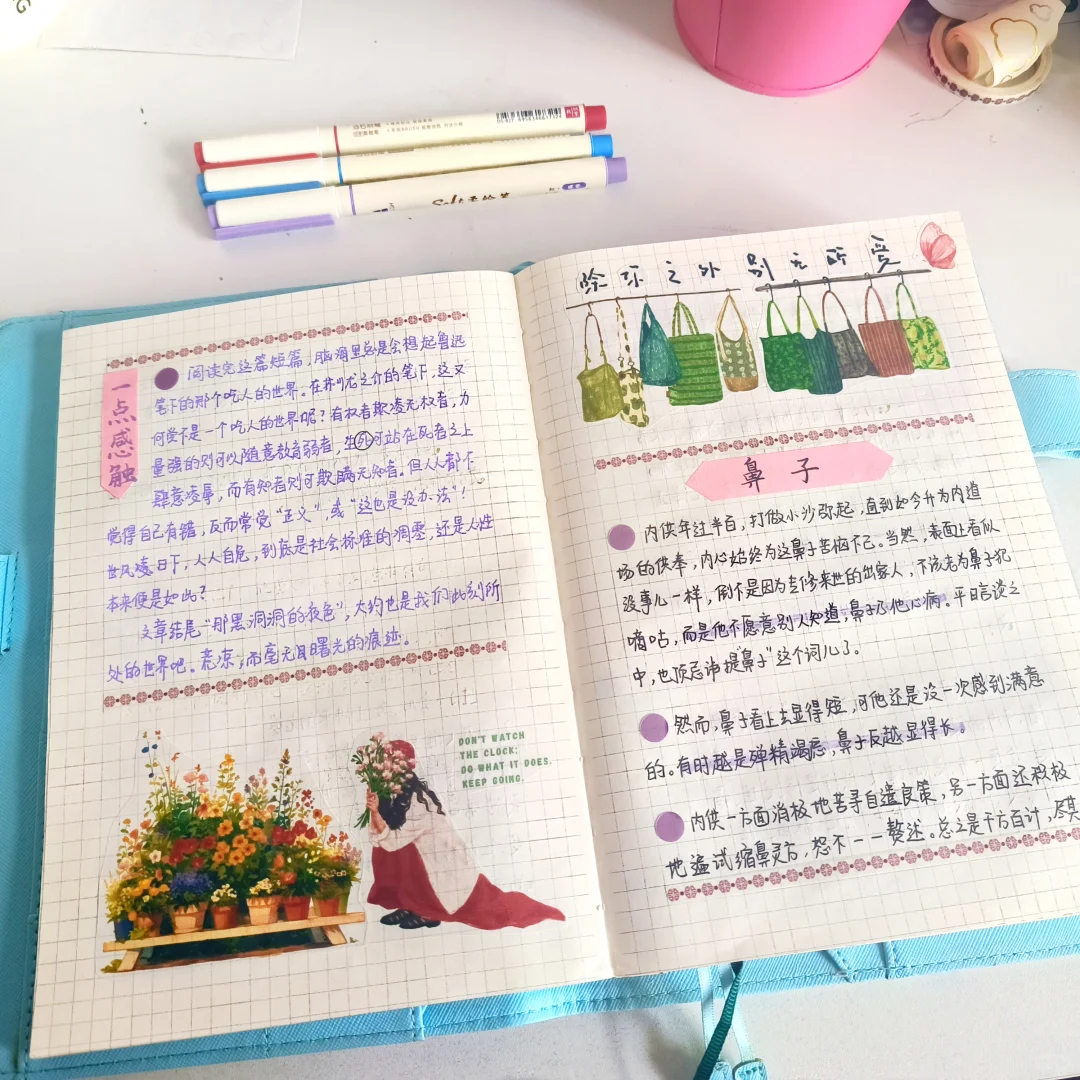 Soft手绘笔
一点感触
阅读完这篇短篇，脑海里总是会想起鲁迅
笔下的那个吃人的世界。在芥川龙之介的笔下，这又
何尝不是一个吃人的世界呢？有权者欺凌无权者，力
量强的则可以随意教育弱者，生死可站在死者之上
肆意凌辱，而有知者则可欺瞒无知者。但人人都不
觉得自己有错，反而常觉“正义”，或“这也是没办法”！
世风凌日下，人人自危，到底是社会标准的凋零，还是人性
本来便是如此？
文章结尾“那黑洞洞的夜色”，大约也是我们此刻所
处的世界吧。荒凉，而毫无曙光的痕迹。
DON'T WATCH
THE CLOCK;
DO WHAT IT DOES.
KEEP GOING.
除环之外 别无所爱
鼻子
内供年过半百，打做小沙弥起，直到如今升为内道
场的供奉，内心始终为这鼻子苦恼不已。当然，表面上看似
没事儿一样，倒不是因为专修来世的出家人，不该老为鼻子犯
嘀咕，而是他不愿意别人知道，鼻子乃他心病。平日言谈之
中，也顶忌讳提“鼻子”这个词儿了。
然而，鼻子看上去显得短，可他还是没一次感到满意
的。有时越是殚精竭虑，鼻子反越显得长。
内供一方面消极地苦寻自遣良策，另一方面还积极
地遍试缩鼻灵方，恕不一一赘述。总之是千方百计，尽其